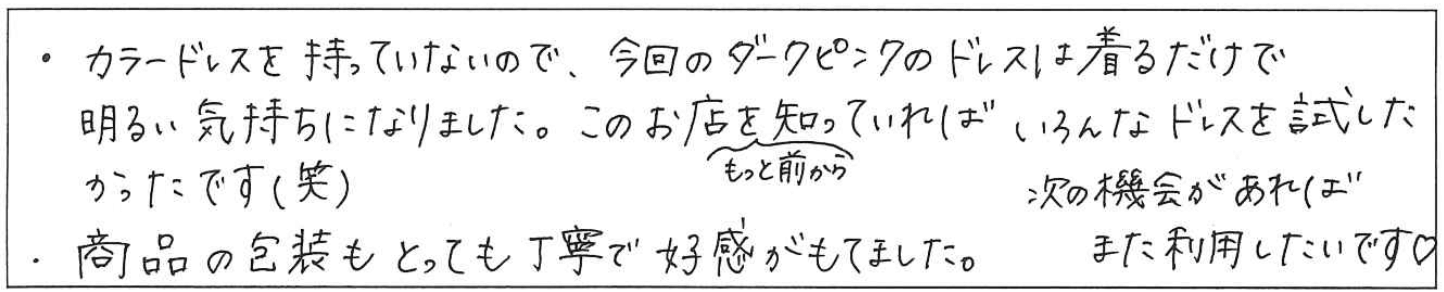 ・カラードレスを持っていないので、今回のダークピンクのドレスは着るだけで
明るい気持ちになりました。このお店を知っていれば いろんなドレスを試した
もっと前から
かったです(笑)
・商品の包装もとっても丁寧で好感がもてました。
次の機会があれば
また利用したいです♡